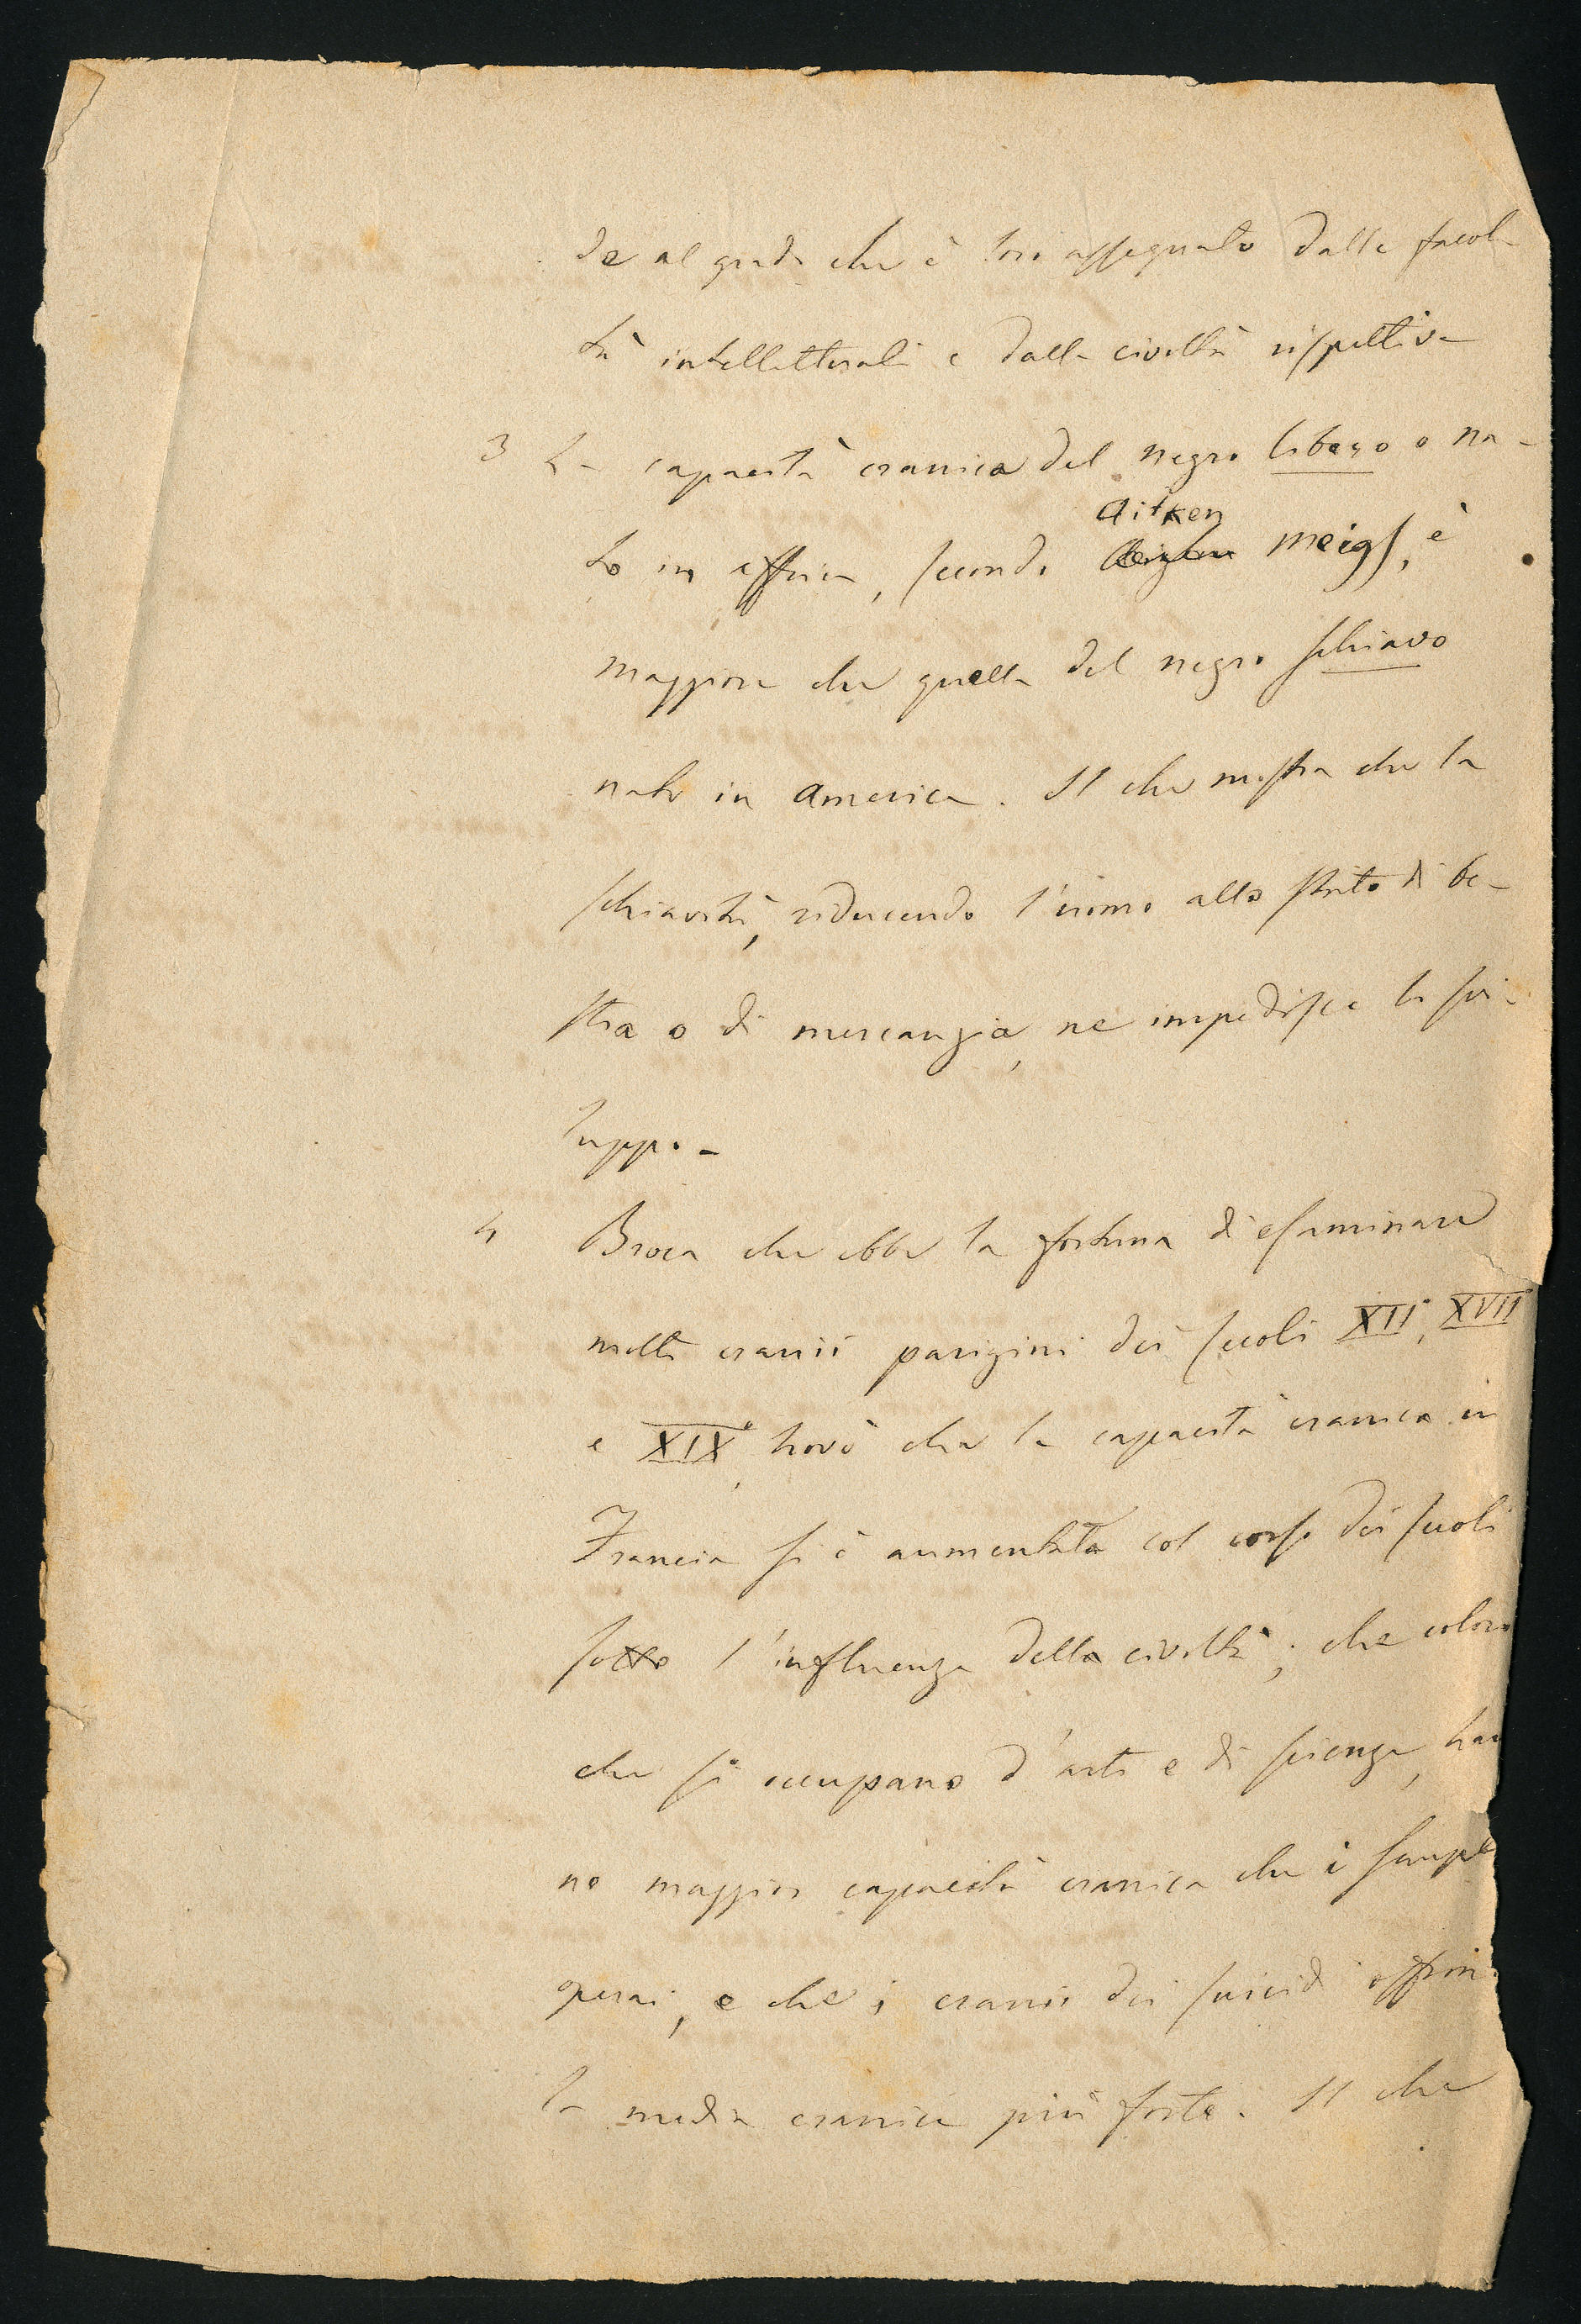 de al grado che è loro assegnato dalle facol-
tà intellettuali e dalla civiltà rispettiva
3 La capacità cranica del negro libero o na-
Aitken
to in affrica, secondo Meigs, è
maggiore che quella del negro schiavo
nato in America. Il che mostra che la
schiavitù, riducendo l'uomo allo stato di be-
stia o di mercanzia, ne impedisce lo svi-
luppo. -
4 Broca che ebbe la fortuna di esaminare
molti cranii parigini dei secoli XII, XVII
e XIX, trovò che la capacità cranica in
Francia si è aumentata col corso dei secoli
sotto l'influenza della civiltà; che coloro
che si occupano d'arti e di scienze, han
no maggior capacità cranica che i sempl
operai, e che i cranii dei suicidi offron
la media cranica più forte. Il che